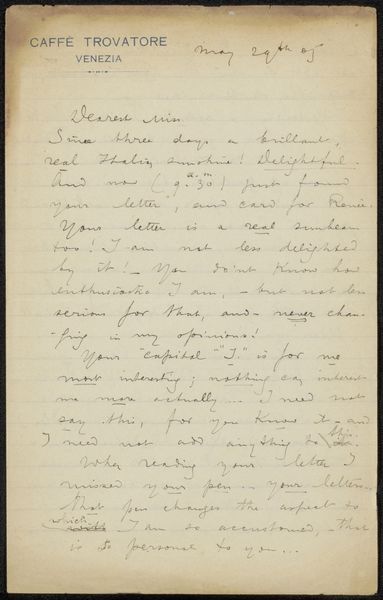 CAFFÈ TROVATORE
VENEZIA
May 29th 05
Dearest Miss
Since three days a brillant,
real Italian sunshine! Delightful.
And now (9.30 a.m) just found
your letter, and card for Renée.
Your letter is a real sunbeam
too! I am not less delighted
by it! – You don't know how
enthusiastic I am, – but not less
serious for that, and – never chan-
ging in my opinions!
Your "capital" "I" is for me
most interesting; nothing can interest
me more actually... I need not
say this, for you know it – and
I need not add anything to this.
When reading your letter I
missed your pen – your letters –
That pen changes the aspect to
which I am so accustomed, – that
is so personal to you...